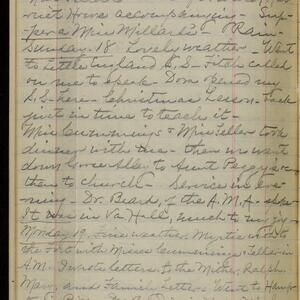 riet Howe accompanying - Sup-
per a Miss Millard's - Rain -
Sunday. 18 Lovely weather - Went
to Little England S.S - Fitch called
on me to speak. Dora opened my
S.S. here - Christmas Lesson - back
just in time to teach it -
Miss Cummings + Miss Feller took
dinner with me - then we went
down to Aunt Peggy's +
then to church - Service in eve-
ning - Dr. Beard, of the A.M.A. spoke
It was in Va Hall, much to my joy -
Monday 19. Fine weather.
the Fort with Misses Cummings + Feller in
A.M. I wrote letters, to the Mither, Ralph
Mary and Family Letter - Went to Hamp-